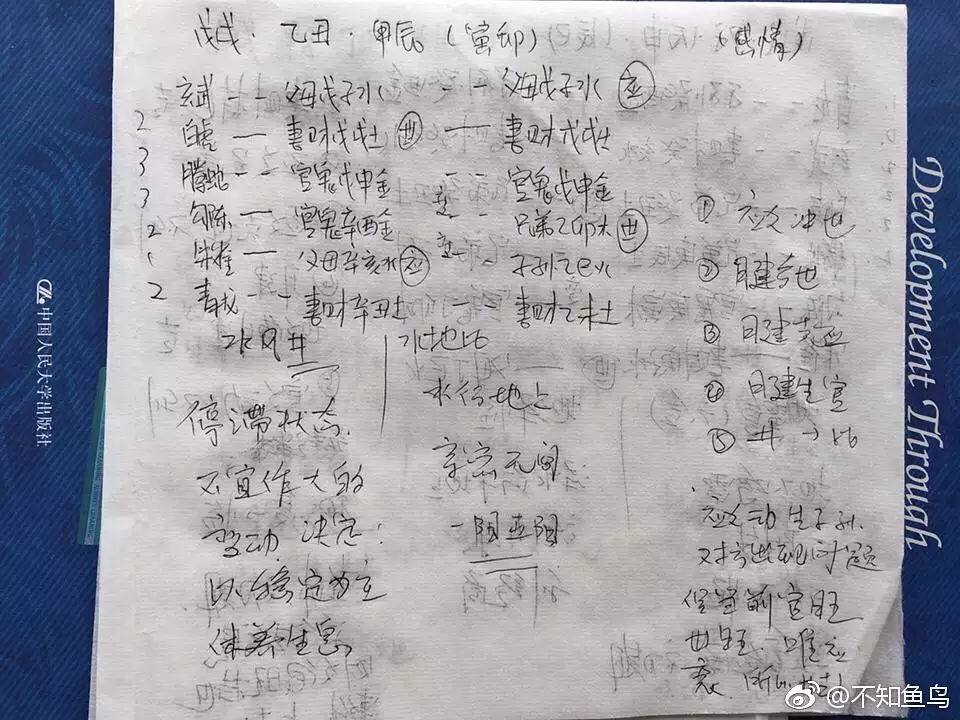 戊戌·乙丑·甲辰(寅卯)(感情)
玄武 -- 父母戊子水 -- 父母戊子水 应
2 白虎 — 妻财戊戌土 世 — 妻财戊戌土
3 腾蛇 -- 官鬼戊申金 -- 官鬼戊申金
3 勾陈 — 官鬼辛酉金 -- 兄弟乙卯木 世
2 朱雀 — 父母辛亥水 应 -- 子孙乙巳火
1
2 青龙 -- 妻财辛丑土 妻财乙未土
水风井
水地比
停滞状态
不宜作大的
变动 决定:
以稳定为主
休养生息
水行地上
亲密无间
① 应爻冲世
② 日建合世
③ 日建克应
④ 日建生官
⑤ 井→比
应爻动生子孙
对方出现问题
但当前官旺
世旺 唯应
衰
中国人民大学出版社
Development Through
@不知鱼鸟